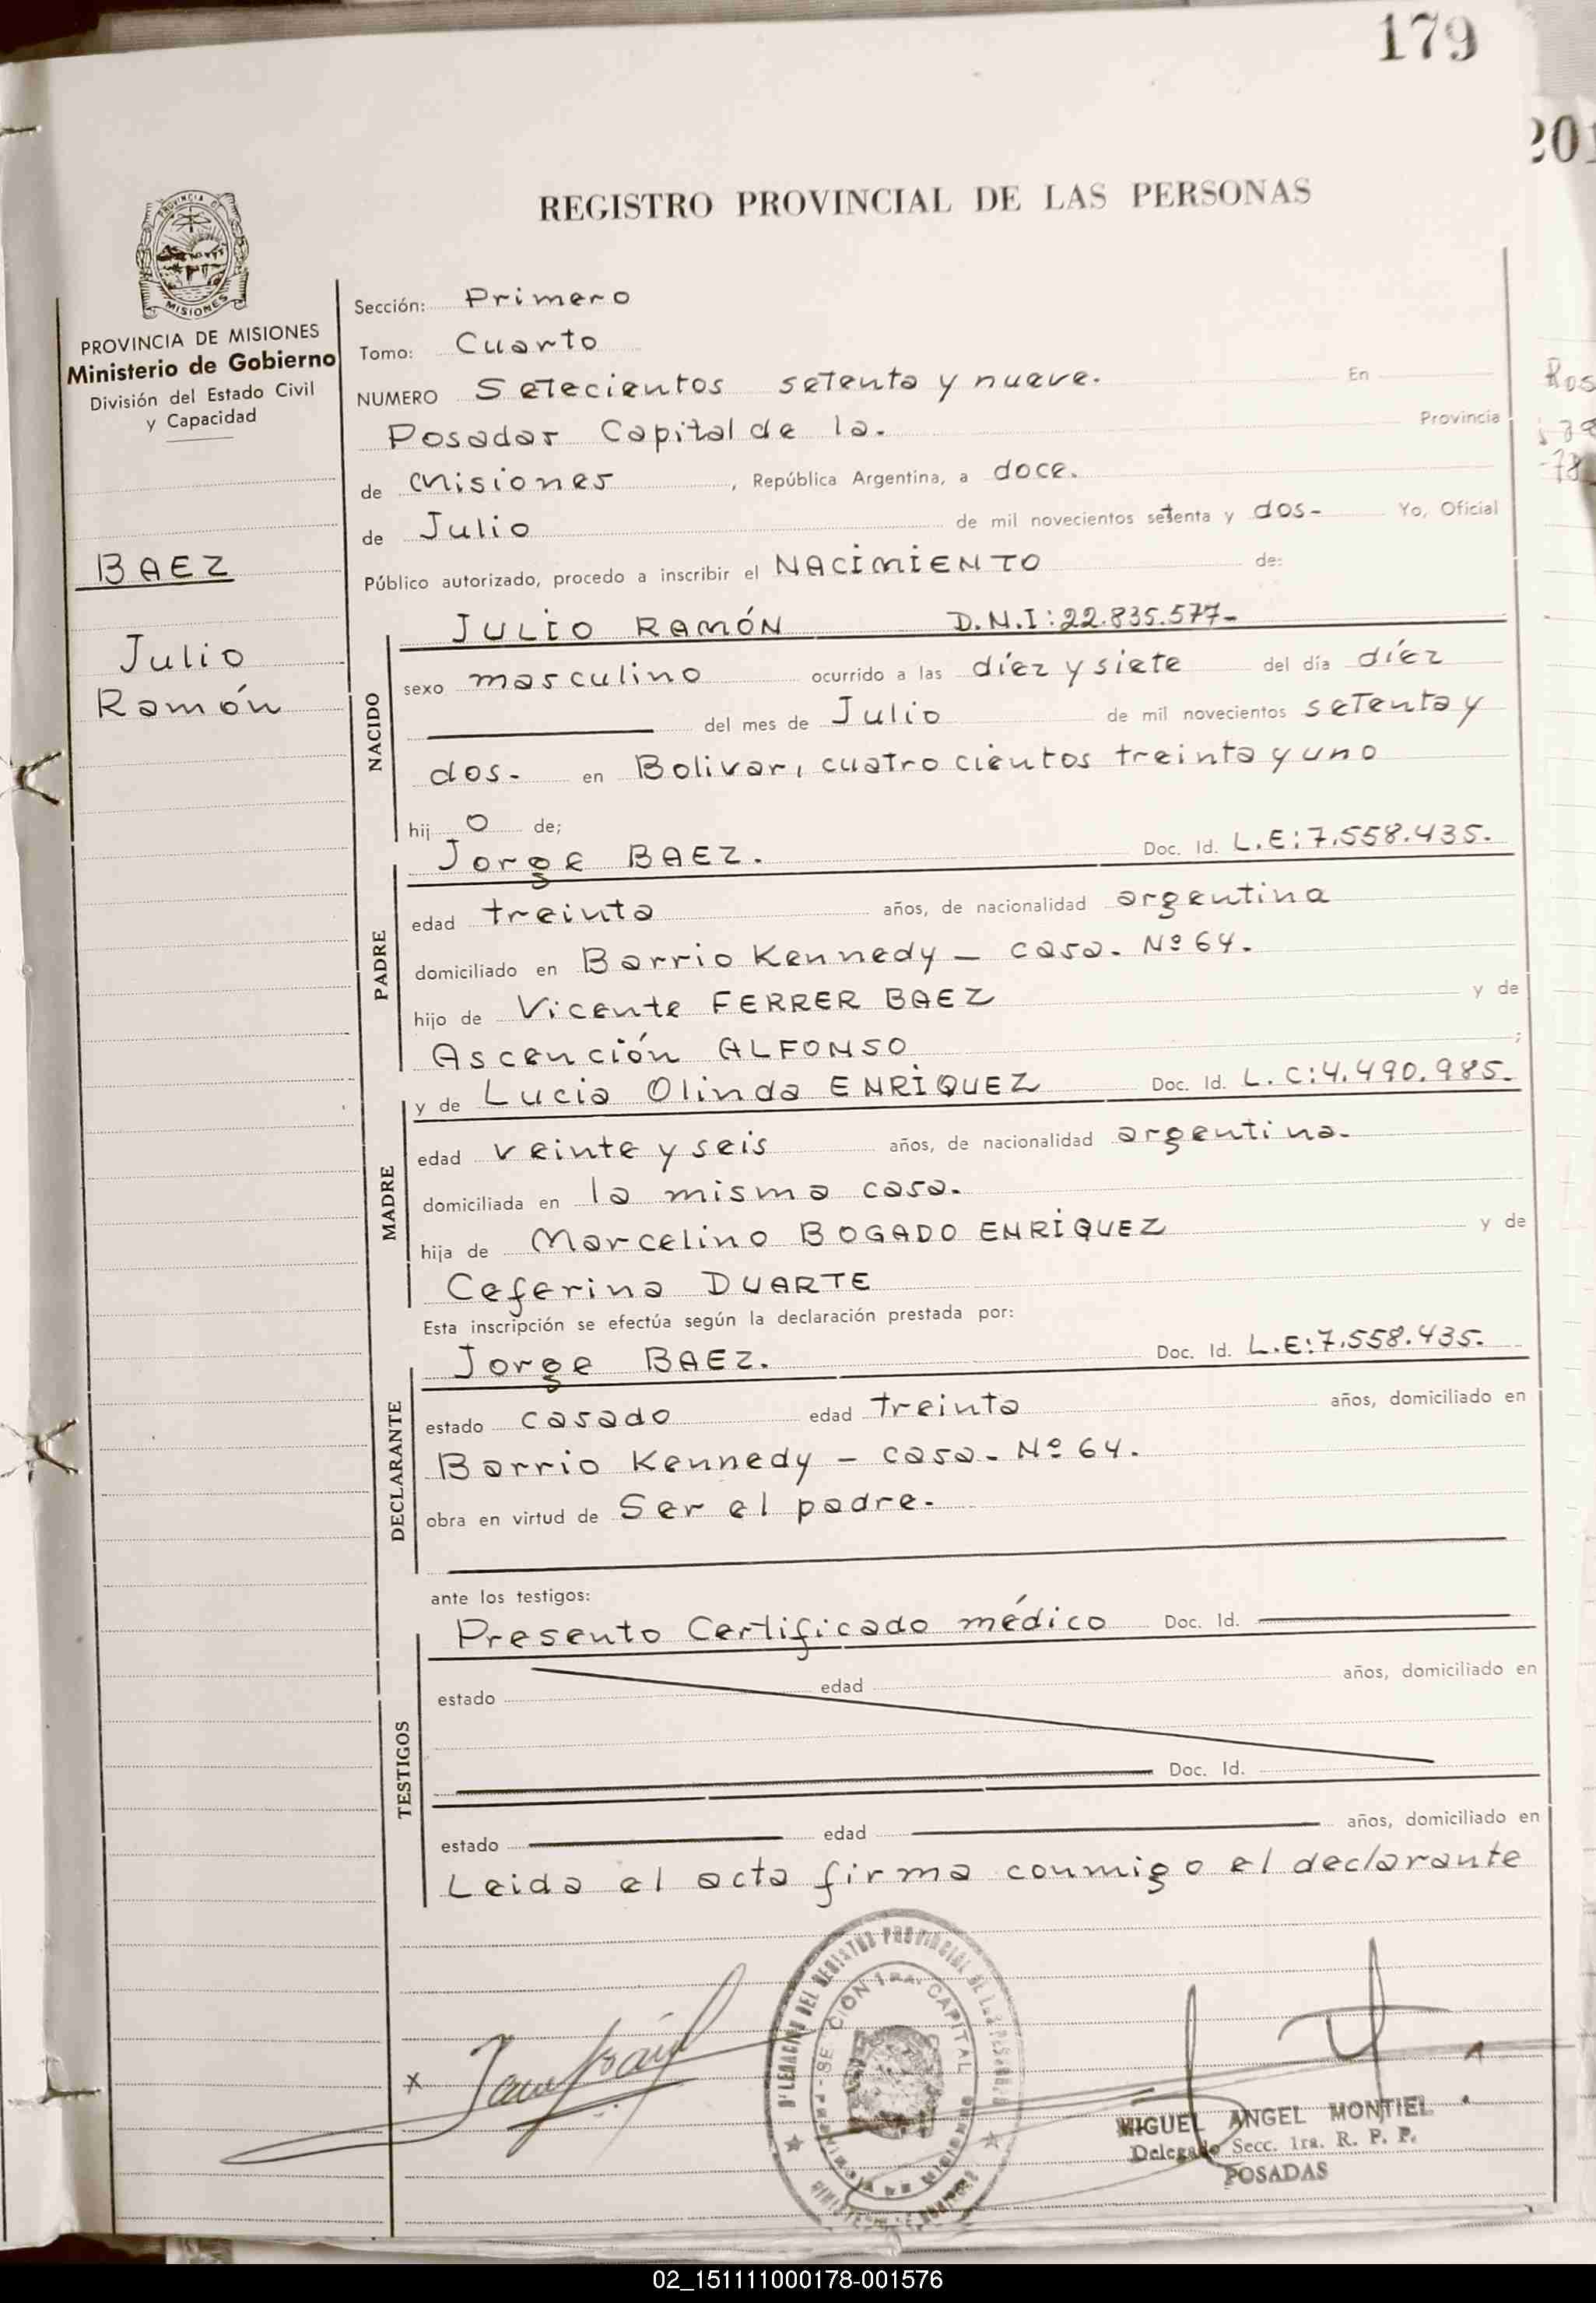 179
201
REGISTRO PROVINCIAL DE LAS PERSONAS
PROVINCIA DE MISIONES
Ministerio de Gobierno
División del Estado Civil
y Capacidad
BAEZ
Julio
Ramón
Sección: Primero
Tomo: Cuarto
NUMERO Setecientos setenta y nueve. En
Posadas Capital de la. Provincia
de Misiones, República Argentina, a doce.
de Julio de mil novecientos setenta y dos- Yo, Oficial
Público autorizado, procedo a inscribir el NACIMIENTO de:
JULIO RAMÓN D.N.I: 22.835.577-
NACIDO
sexo masculino ocurrido a las díez y siete del día díez
del mes de Julio de mil novecientos setenta y
dos- en Bolivar, cuatrocientos treinta y uno
hij o de;
Jorge BAEZ. Doc. Id. L.E: 7.558.435.
PADRE
edad treinta años, de nacionalidad argentina
domiciliado en Barrio Kennedy - casa- Nº 64.
hijo de Vicente FERRER BAEZ y de
Ascención ALFONSO ;
y de Lucia Olinda ENRIQUEZ Doc. Id. L.C: 4.490.985.
MADRE
edad veinte y seis años, de nacionalidad argentina-
domiciliada en la misma casa.
hija de Marcelino BOGADO ENRIQUEZ y de
Ceferina DUARTE
Esta inscripción se efectúa según la declaración prestada por:
Jorge BAEZ. Doc. Id. L.E: 7.558.435.
DECLARANTE
estado casado edad treinta años, domiciliado en
Barrio Kennedy - casa- Nº 64.
obra en virtud de Ser el padre.
ante los testigos:
Presento Certificado médico Doc. Id.
TESTIGOS
estado edad años, domiciliado en
Doc. Id.
estado edad años, domiciliado en
Leida el acta firma conmigo el declarante
MIGUEL ANGEL MONTIEL
Delegado Secc. 1ra. R. P. P.
POSADAS
02_151111000178-001576